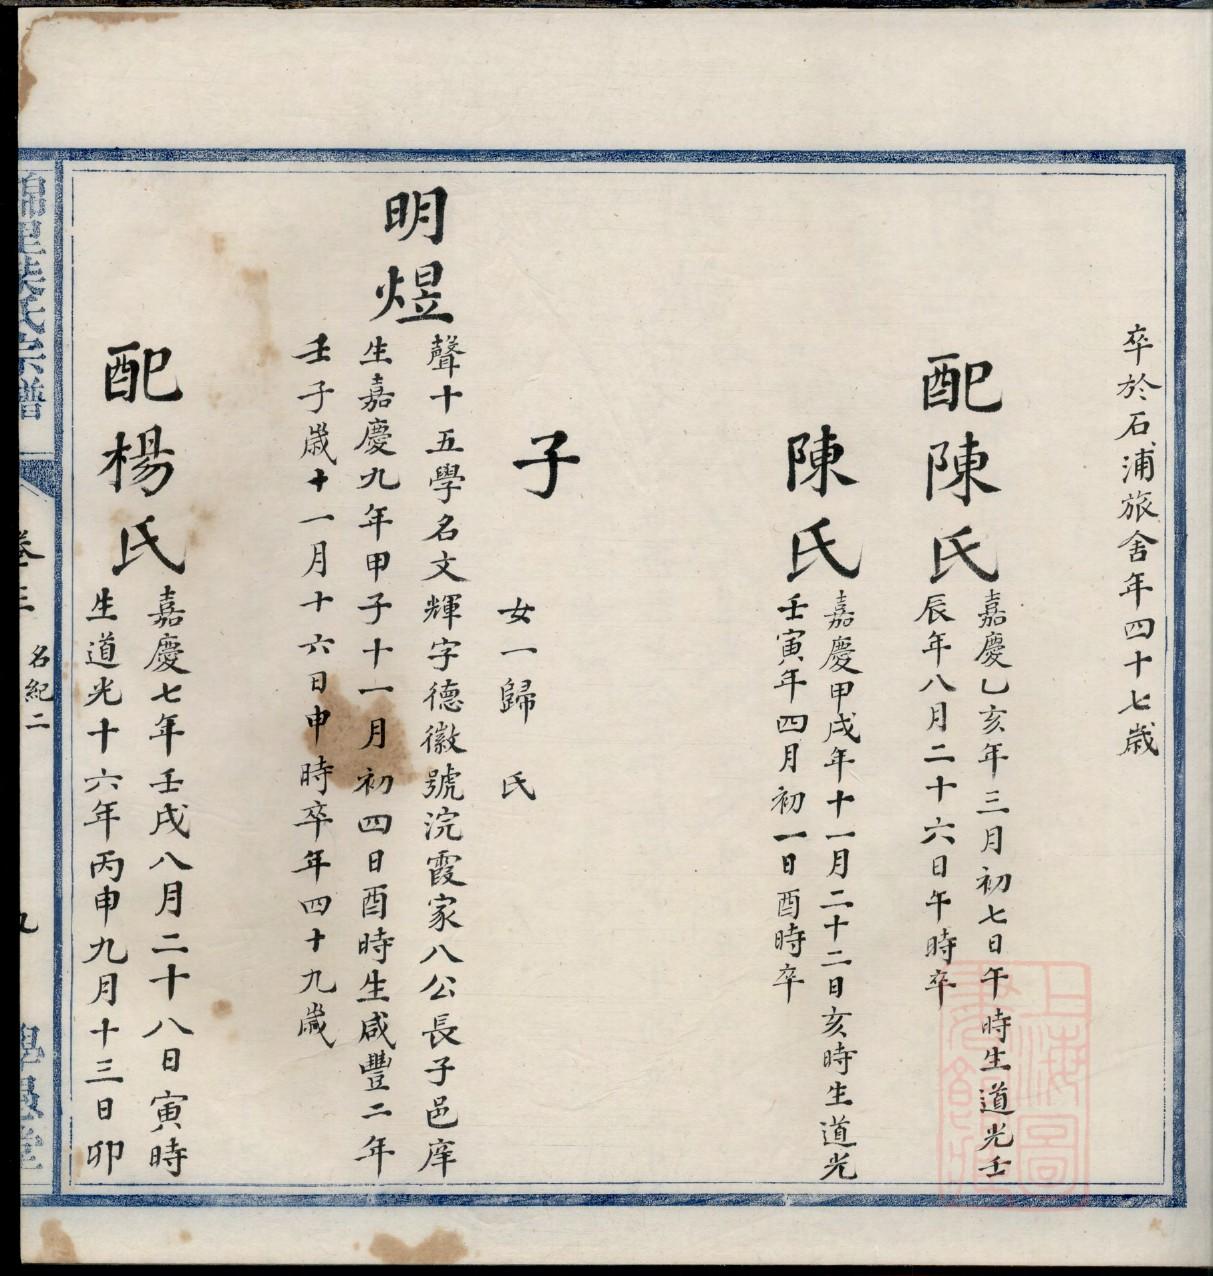 卒於石浦旅舍年四十七歲
配陳氏
嘉慶乙亥年三月初七日午時生道光壬
辰年八月二十六日午時卒
陳氏
嘉慶甲戌年十一月二十二日亥時生道光
壬寅年四月初一日酉時卒
子
女一歸 氏
明煜
聲十五學名文輝字德徽號浣霞家八公長子邑庠
生嘉慶九年甲子十一月初四日酉時生咸豐二年
壬子歲十一月十六日申時卒年四十九歲
配楊氏
嘉慶七年壬戌八月二十八日寅時
生道光十六年丙申九月十三日卯
氏宗譜
卷三
名紀二
九
上海圖
書館藏